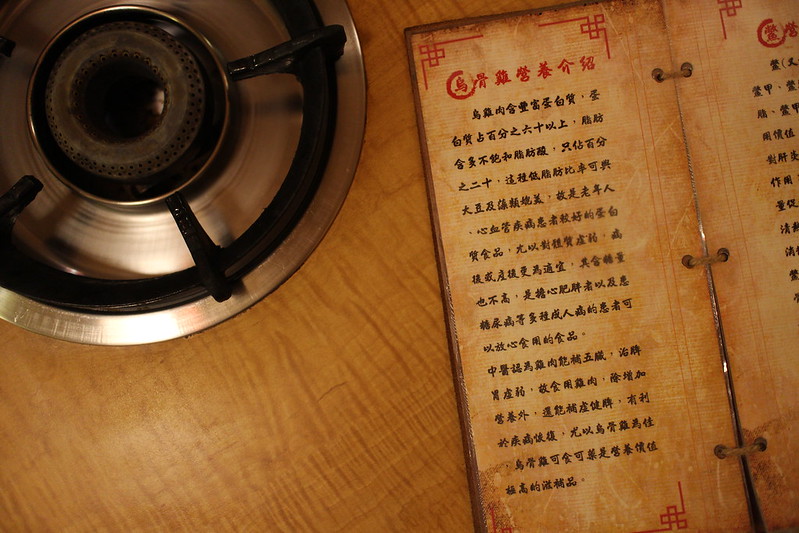 烏骨雞營養介紹
烏雞肉含豐富蛋白質，蛋
白質占百分之六十以上，脂肪
含多不飽和脂肪酸，只佔百分
之二十，這種低脂肪比率可與
大豆及藻類媲美，故是老年人
、心血管疾病患者較好的蛋白
質食品，尤以對體質虛弱，病
後或產後更為適宜，其含糖量
也不高，是擔心肥胖者以及患
糖尿病等多種成人病的患者可
以放心食用的食品。
中醫認為雞肉能補五臟，治脾
胃虛弱，故食用雞肉，除增加
營養外，還能補虛健脾，有利
於疾病恢復，尤以烏骨雞為佳
，烏骨雞可食可藥是營養價值
極高的滋補品。
鱉營
鱉(又
鱉甲、鱉
脂、鱉甲
用價值
對肝炎
作用
量促
清熱
消
鱉